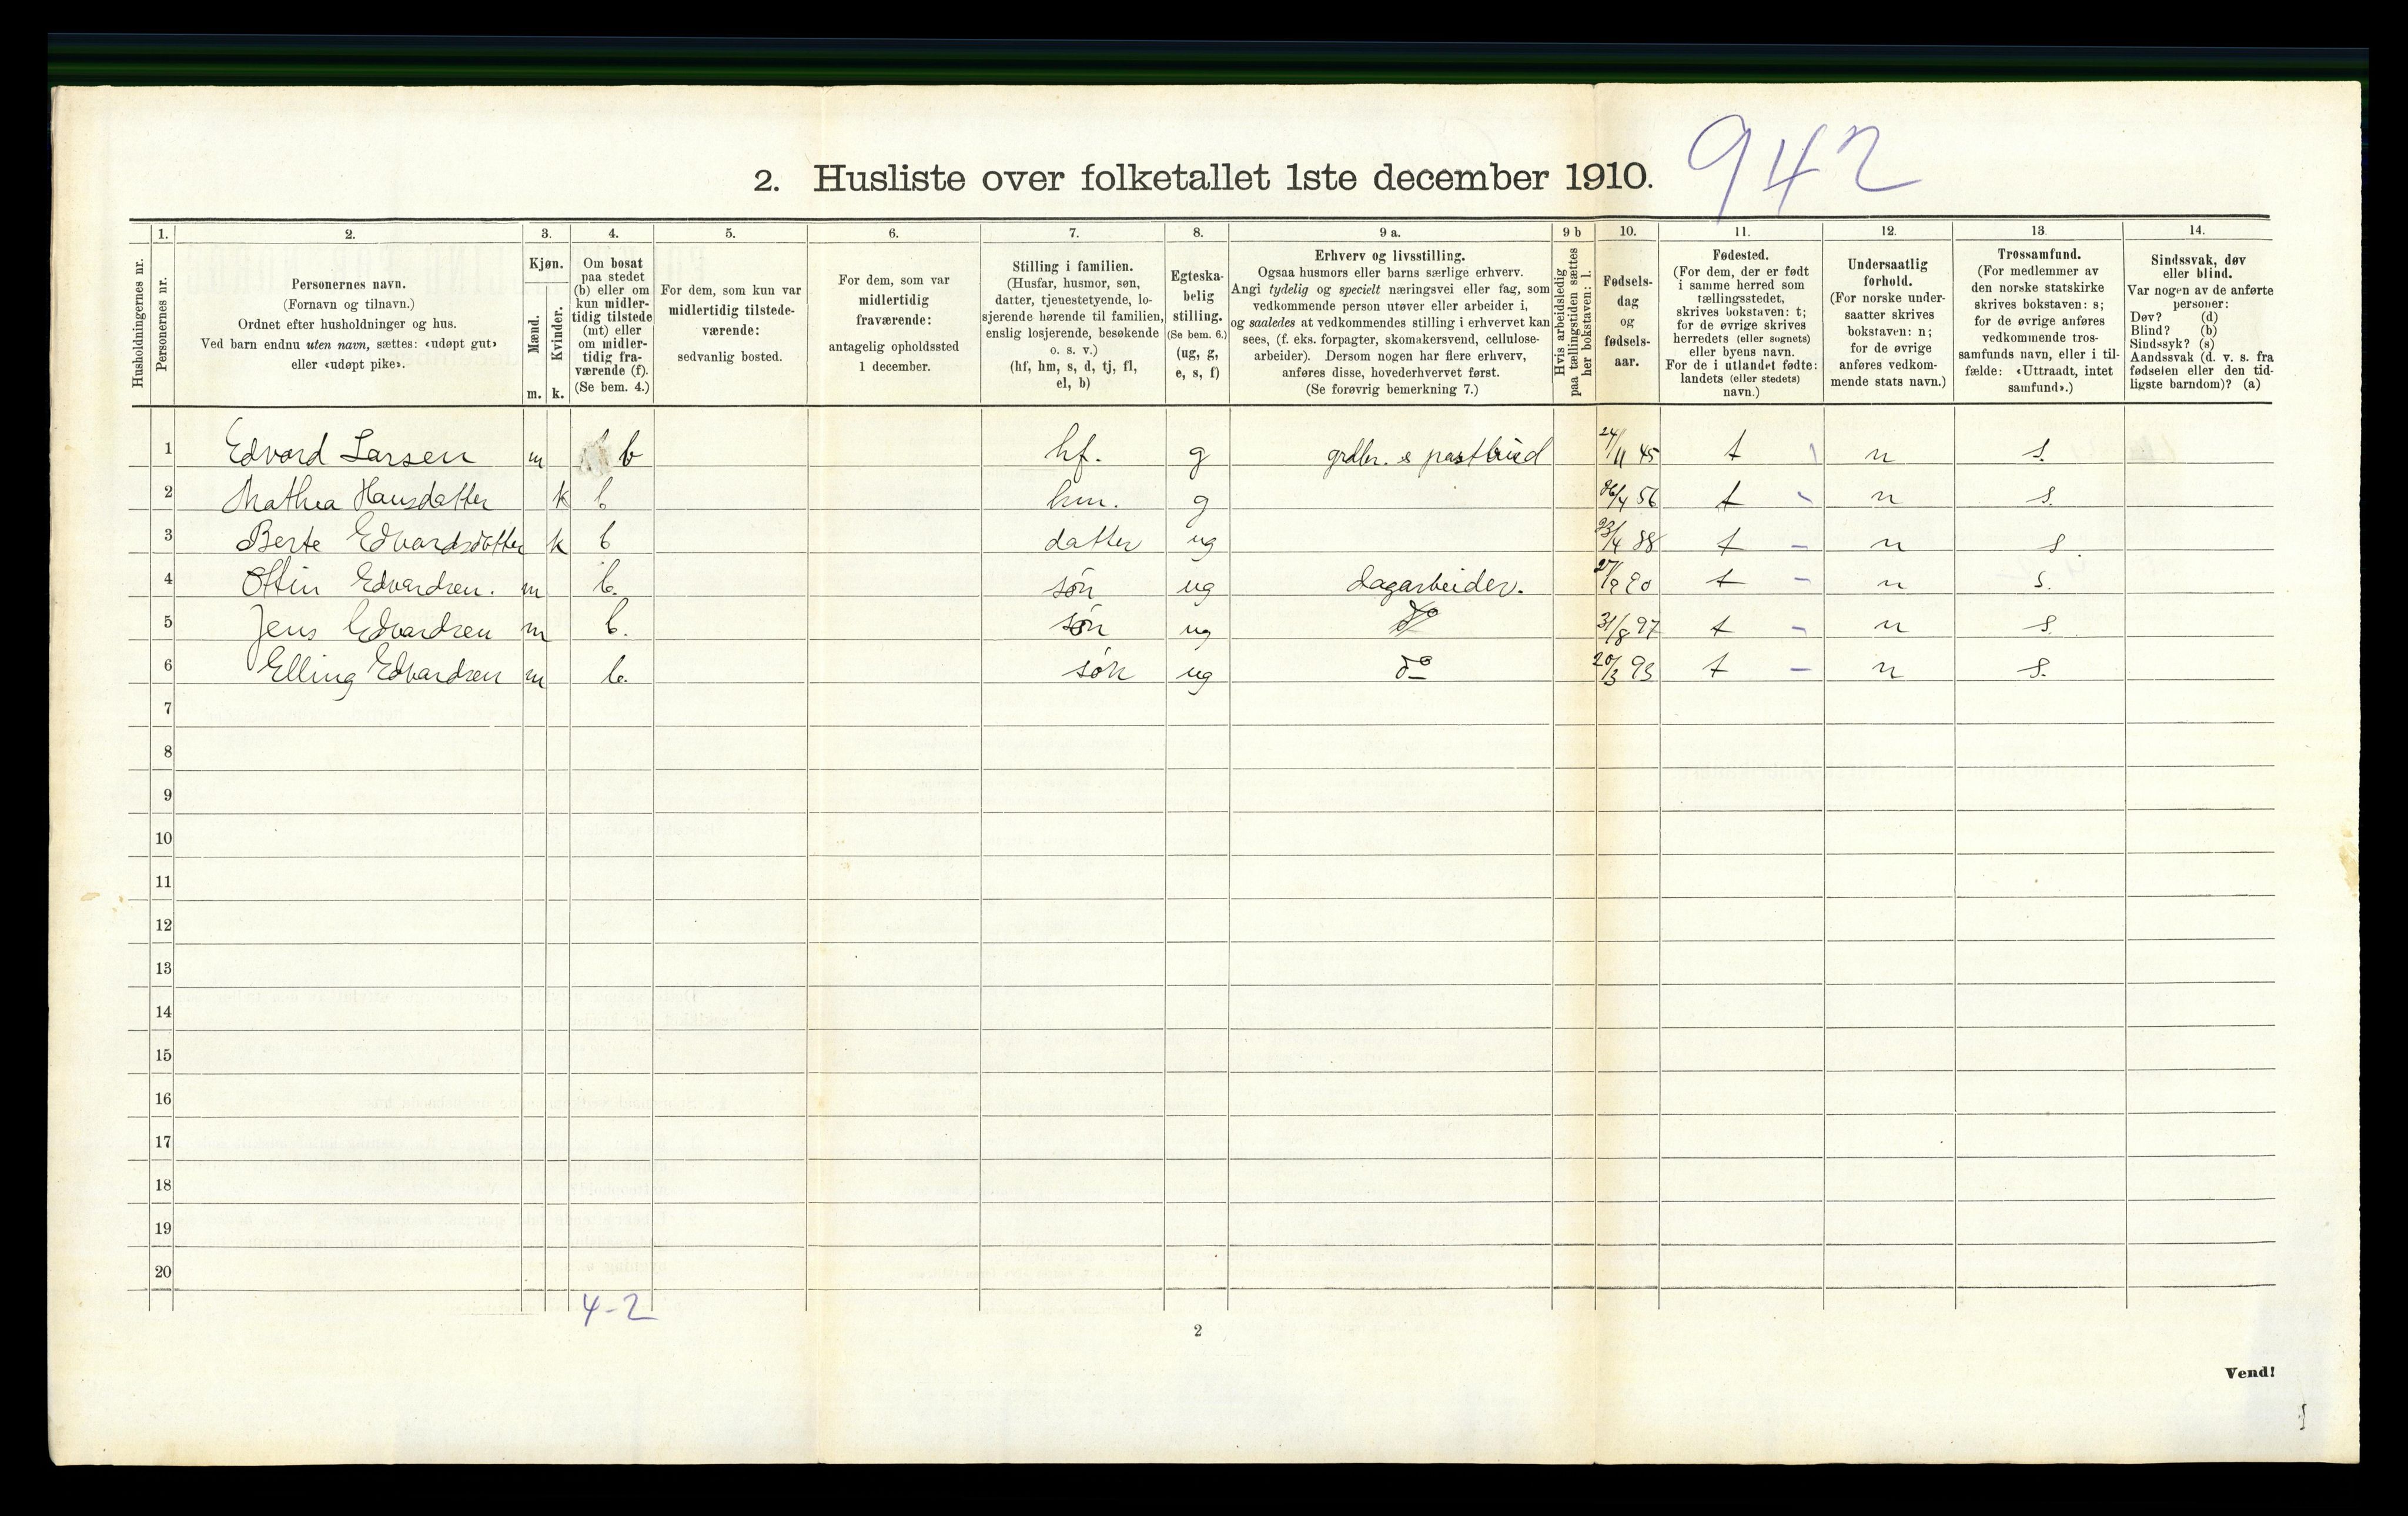 942
2. Husliste over folketallet 1ste december 1910.
1. 2. 3. 4. 5. 6. 7. 8. 9 a. 9 b 10. 11. 12. 13. 14.
Husholdningernes nr.
Personernes nr.
Personernes navn.
(Fornavn og tilnavn.)
Ordnet efter husholdninger og hus.
Ved barn endnu uten navn, sættes: «udøpt gut»
eller «udøpt pike».
Kjøn.
Mænd.
Kvinder.
m. k.
Om bosat
paa stedet
(b) eller om
kun midler-
tidig tilstede
(mt) eller
om midler-
tidig fra-
værende (f).
(Se bem. 4.)
For dem, som kun var
midlertidig tilstede-
værende:
sedvanlig bosted.
For dem, som var
midlertidig
fraværende:
antagelig opholdssted
1 december.
Stilling i familien.
(Husfar, husmor, søn,
datter, tjenestetyende, lo-
sjerende hørende til familien,
enslig losjerende, besøkende
o. s. v.)
(hf, hm, s, d, tj, fl,
el, b)
Egteska-
belig
stilling.
(Se bem. 6.)
(ug, g,
e, s, f)
Erhverv og livsstilling.
Ogsaa husmors eller barns særlige erhverv.
Angi tydelig og specielt næringsvei eller fag, som
vedkommende person utøver eller arbeider i,
og saaledes at vedkommendes stilling i erhvervet kan
sees, (f. eks. forpagter, skomakersvend, cellulose-
arbeider). Dersom nogen har flere erhverv,
anføres disse, hovederhvervet først.
(Se forøvrig bemerkning 7.)
Hvis arbeidsledig
paa tællingstiden sættes
her bokstaven: l.
Fødsels-
dag
og
fødsels-
aar.
Fødested.
(For dem, der er født
i samme herred som
tællingsstedet,
skrives bokstaven: t;
for de øvrige skrives
herredets (eller sognets)
eller byens navn.
For de i utlandet fødte:
landets (eller stedets)
navn.)
Undersaatlig
forhold.
(For norske under-
saatter skrives
bokstaven: n;
for de øvrige
anføres vedkom-
mende stats navn.)
Trossamfund.
(For medlemmer av
den norske statskirke
skrives bokstaven: s;
for de øvrige anføres
vedkommende tros-
samfunds navn, eller i til-
fælde: «Uttraadt, intet
samfund».)
Sindssvak, døv
eller blind.
Var nogen av de anførte
personer:
Døv? (d)
Blind? (b)
Sindssyk? (s)
Aandssvak (d. v. s. fra
fødselen eller den tid-
ligste barndom)? (a)
1 Edvard Larsen m b hf. g grdbr. & postbud 24/11 45 t n s.
2 Mathea Hansdatter k b hm. g 26/4 56 t - n s.
3 Berte Edvardsdatter k b datter ug 23/4 88 t - n s.
4 Ottin Edvardsen. m b. søn ug dagarbeider. t - n s.
5 Jens Edvardsen m b. søn ug do 31/8 97 t - n s.
6 Elling Edvardsen m b. søn ug do 20/3 93 t - n s.
7
8
9
10
11
12
13
14
15
16
17
18
19
20
4-2
2
Vend!